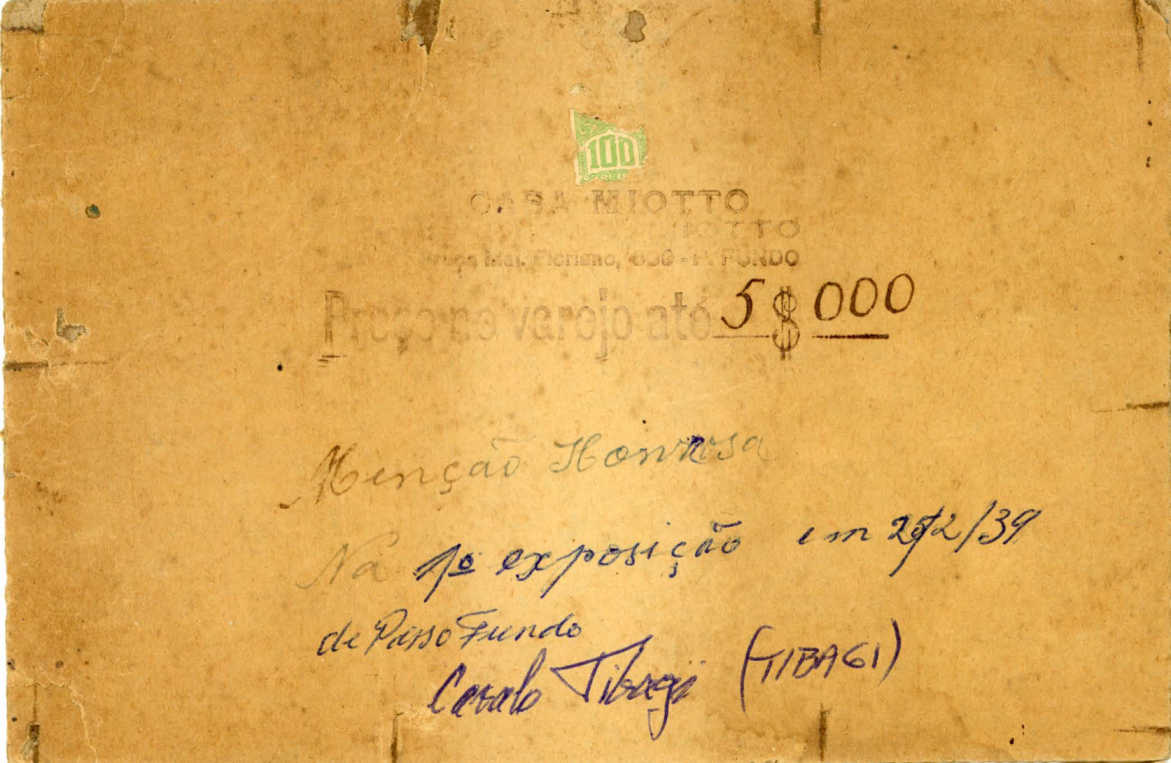 100
CASA MIOTTO
MIOTTO
Praça Mal. Floriano, - P. FUNDO
Preço no varejo até 5$000
Menção Honrosa
Na 1º exposição em
de Passo Fundo
Cavalo Tibagi (TIBAGI)